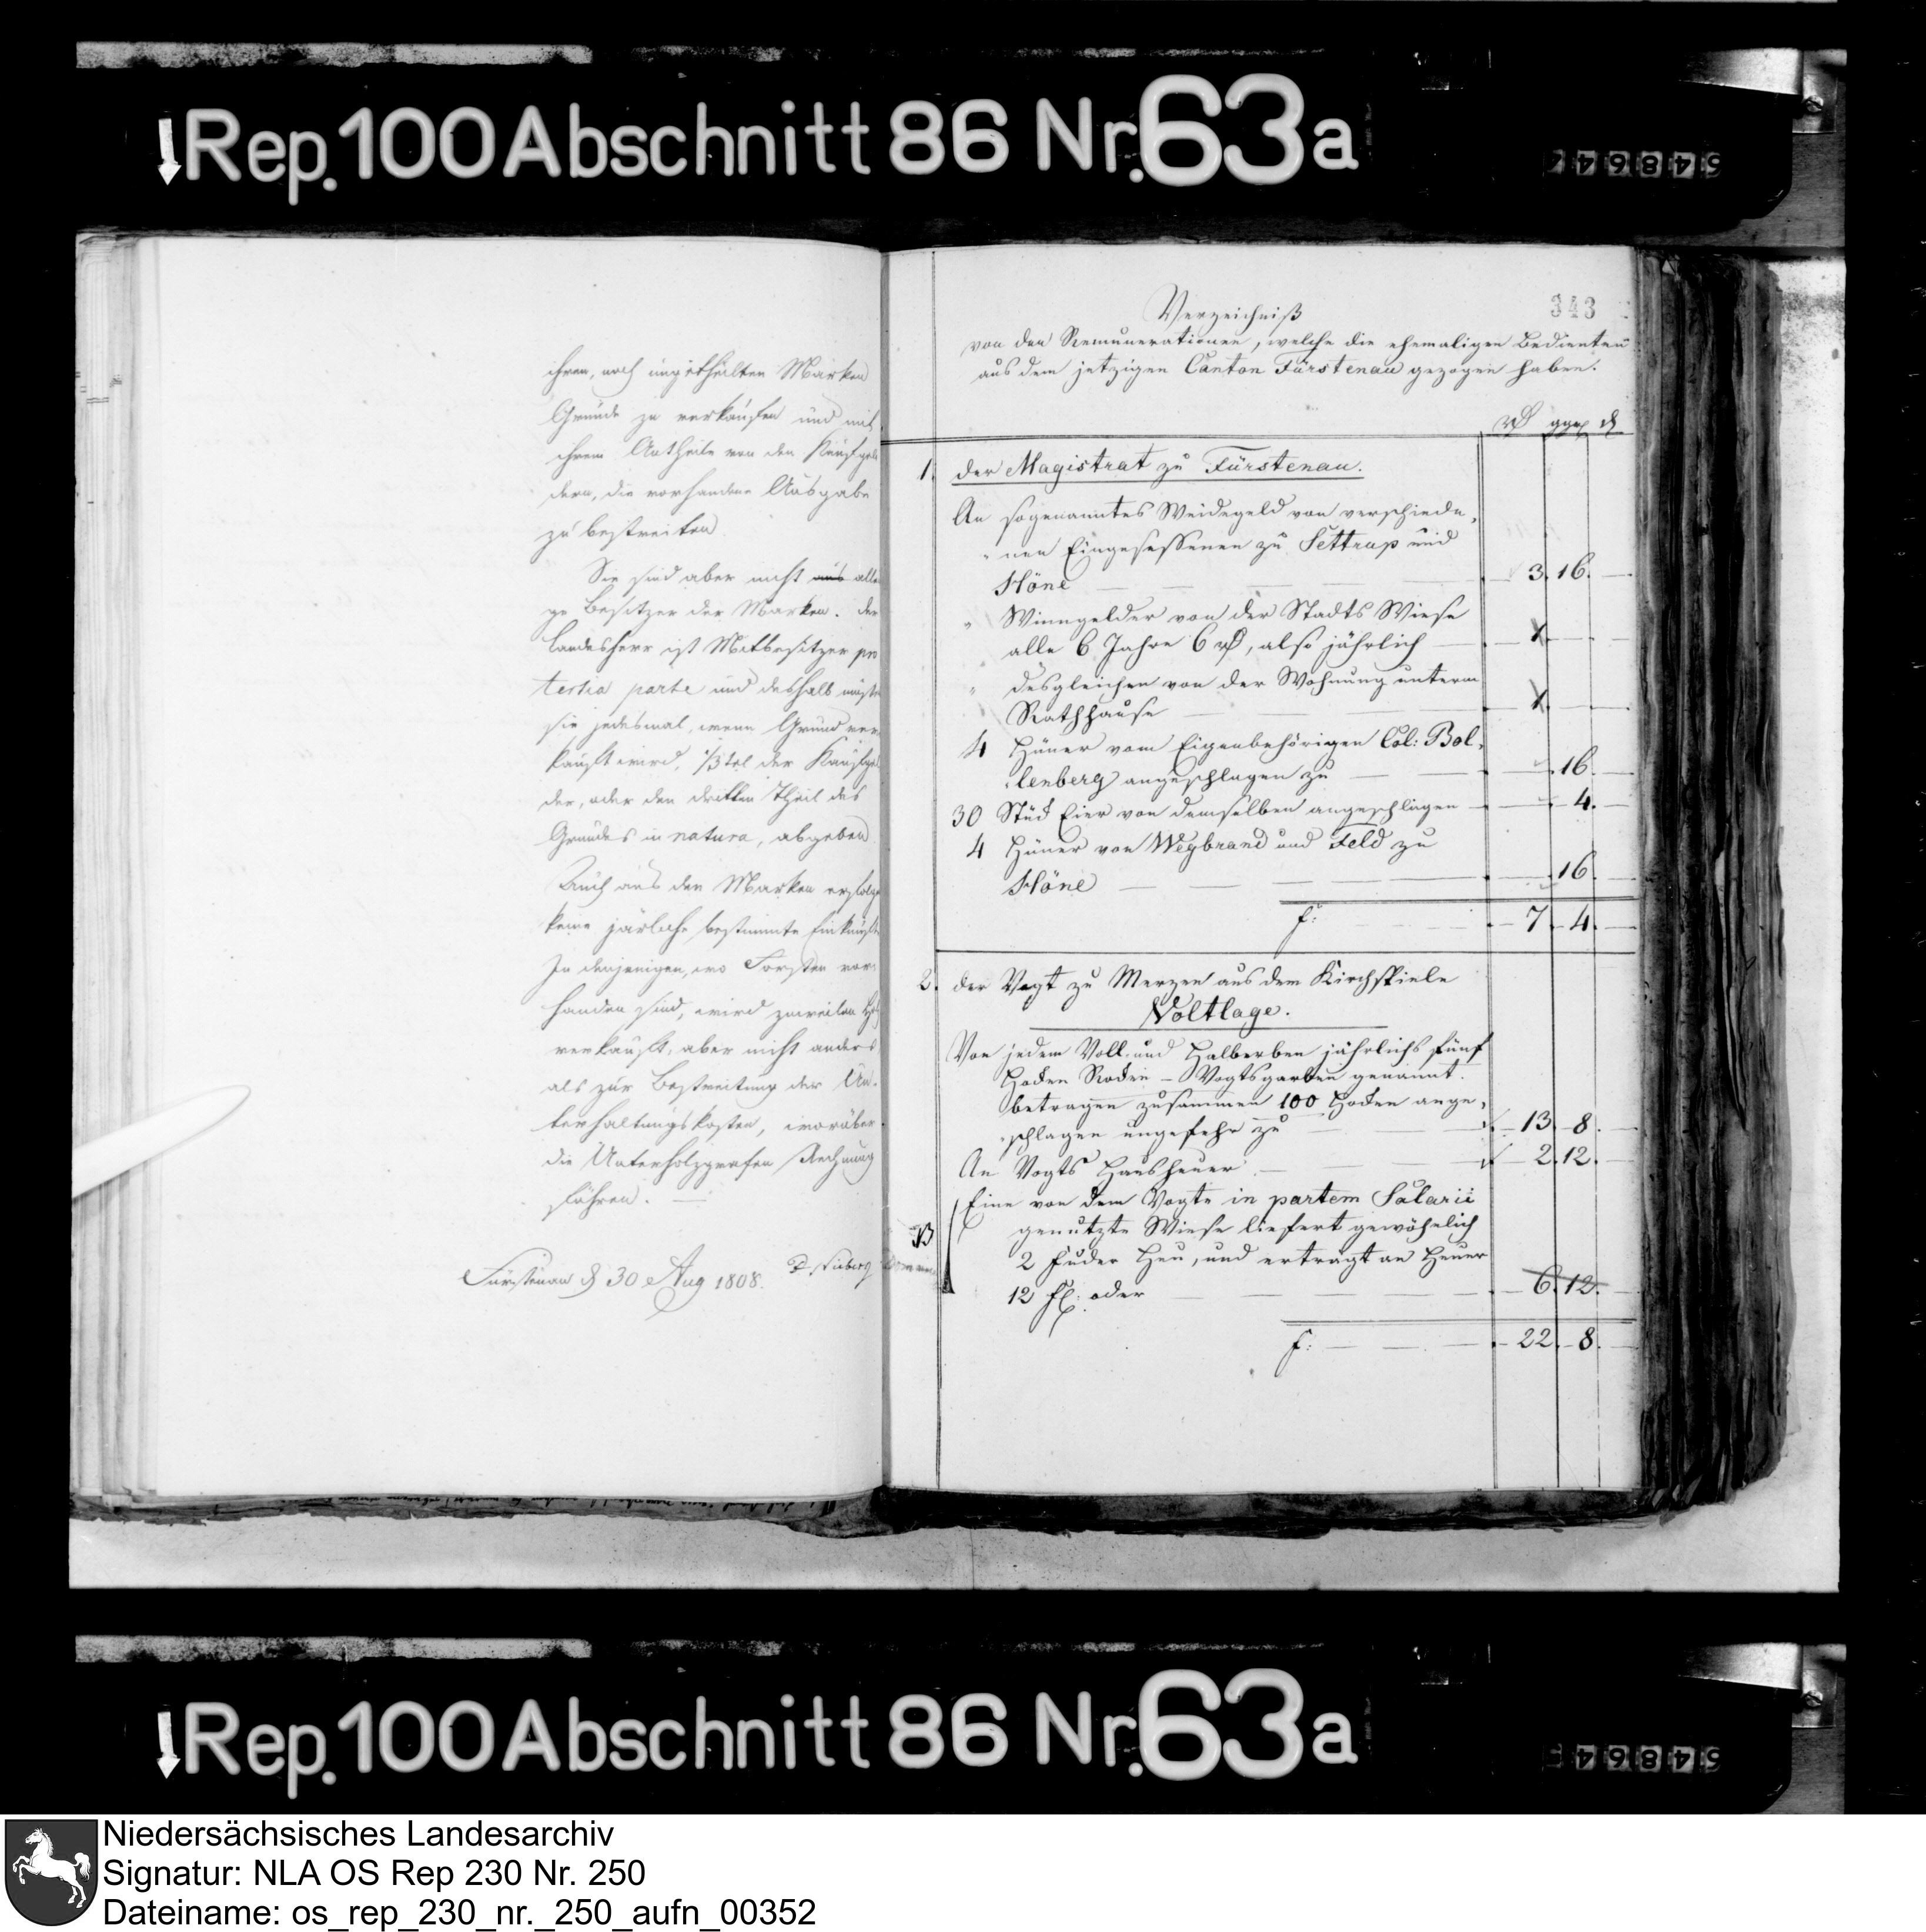 Rep. 100 Abschnitt 86 Nr. 63a
ihren, noch ungetheilten Marken
Gründe zu verkaufen und mit
ihrem Antheile von den Kaufgel
dern, die vorhandene Ausgabe
zu bestreiten
Sie sind aber nicht aus allei
ge Besitzer der Marken. der
Landesherr ist Mitbesitzer pro
tertia parte und deshalb muste
sie jedesmal, wenn Grund ver
kauft wird, 1/3tel der Kaufgel
der, oder den dritten Theil des
Grundes in natura, abgeben
Auch aus den Marken erfolge
keine järliche bestimmte Einkünfte
In denjenigen, wo Forsten vor
handen sind, wird zuweilen
verkauft, aber nicht anders
als zur Bestreitung der Un-
terhaltungskosten, worüber
die Unterholzgrafen Rechnung
führen.
Fürstenau d 30 Aug 1808.
343
Verzeichniß
von den Remunerationen, welche die ehemaligen Bedienten
aus dem jetzigen Canton Fürstenau gezogen haben.
rth ggr d
1. der Magistrat zu Fürstenau.
An sogenanntes Weidegeld von verschiede,
nen Eingesessenen zu Settrup und
Höne 3. 16.
" Winngelder von der Stadts Wiese
alle 6 Jahre 6 rth, also jährlich 1
" desgleichen von der Wohnung unterm
Rathhause 1
4 Hüner vom Eigenbehörigen Col: Bol,
lenberg angeschlagen zu 16.
30 Stück Eier von demselben angeschlagen 4.
4 Hüner von Weybrand und Feld zu
Höne 16
f: 7. 4.
2. der Vogt zu Merzen aus dem Kirchspiele
Voltlage.
Von jedem Voll und Halberben jährlichs fünf
Hocken Rocken - Vogtsgarben genannt.
betragen zusammen 100 Hocken ange,
schlagen ungefehr zu 13. 8.
An Vogts Hausheuer 2. 12.
Eine von dem Vogte in partem Salarii
genutzte Wiese liefert gewöhnlich
2 Fuder Heu, und ertragt an Heuer
12 fl: oder 6. 12.
f: 22. 8.
Rep. 100 Abschnitt 86 Nr. 63a
Niedersächsisches Landesarchiv
Signatur: NLA OS Rep 230 Nr. 250
Dateiname: os_rep_230_nr._250_aufn_00352